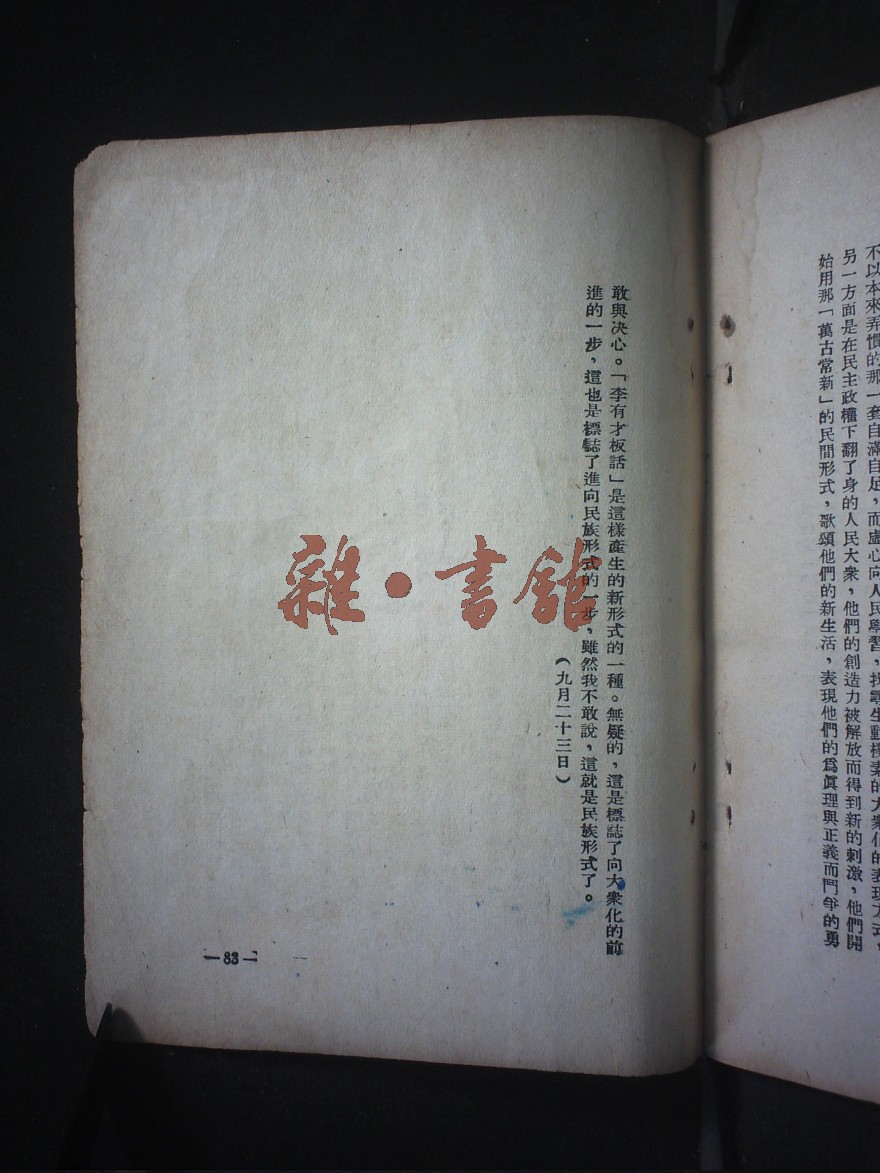 不以本來弄慣的那一套自滿自足，而虛心向人民學習，找尋生動樸素的大衆化的表現方式，
另一方面是在民主政權下翻了身的人民大衆，他們的創造力被解放而得到新的刺激，他們開
始用那「萬古常新」的民間形式，歌頌他們的新生活，表現他們的爲眞理與正義而鬥爭的勇
敢與决心。「李有才板話」是這樣產生的新形式的一種。無疑的，這是標誌了向大衆化的前
進的一步，這也是標誌了進向民族形式的一步，雖然我不敢說，這就是民族形式了。
（九月二十三日）
—83—
雜·書館